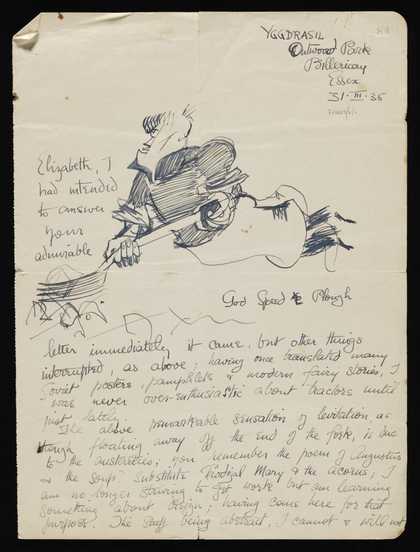 YGGDRASIL
Outwood Park
Billericay
Essex
31·III·35
Elizabeth, I
had intended
to answer
your
admirable
God Speed Plough
letter immediately it came, but other things
interrupted, as above; having once translated many
Soviet posters, pamphlets & modern fairy stories, I
was never over-enthusiastic about tractors until
just lately.
The above remarkable sensation of levitation as
though floating away off the end of the fork, is due
to the austerities; you remember the poem of Augustus
& the Soup: substitute Prodigal Mary & the acorns, I
am no longer striving to get work but am learning
something about design; having come here for that
purpose. The stuff being abstract, I cannot & will not